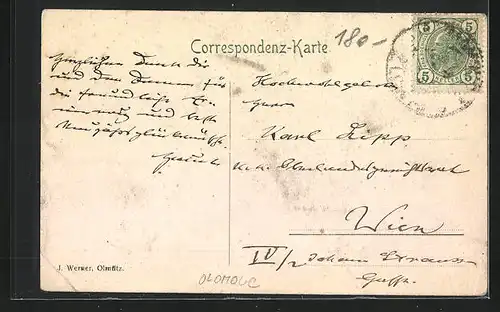 180-
Correspondenz-Karte
5 5
5 5
Herzlichen Dank Dir
und den Damen für
die freundliche Er-
und beste
Neujahrsglückwünsche.
Hochwohlgeboren
Herrn
Karl Zipp
k.k. Oberlandesgerichtsrat
Wien
IV/2 Johann Strauss
Gasse
J. Werner, Olmütz.
OLOMOUC